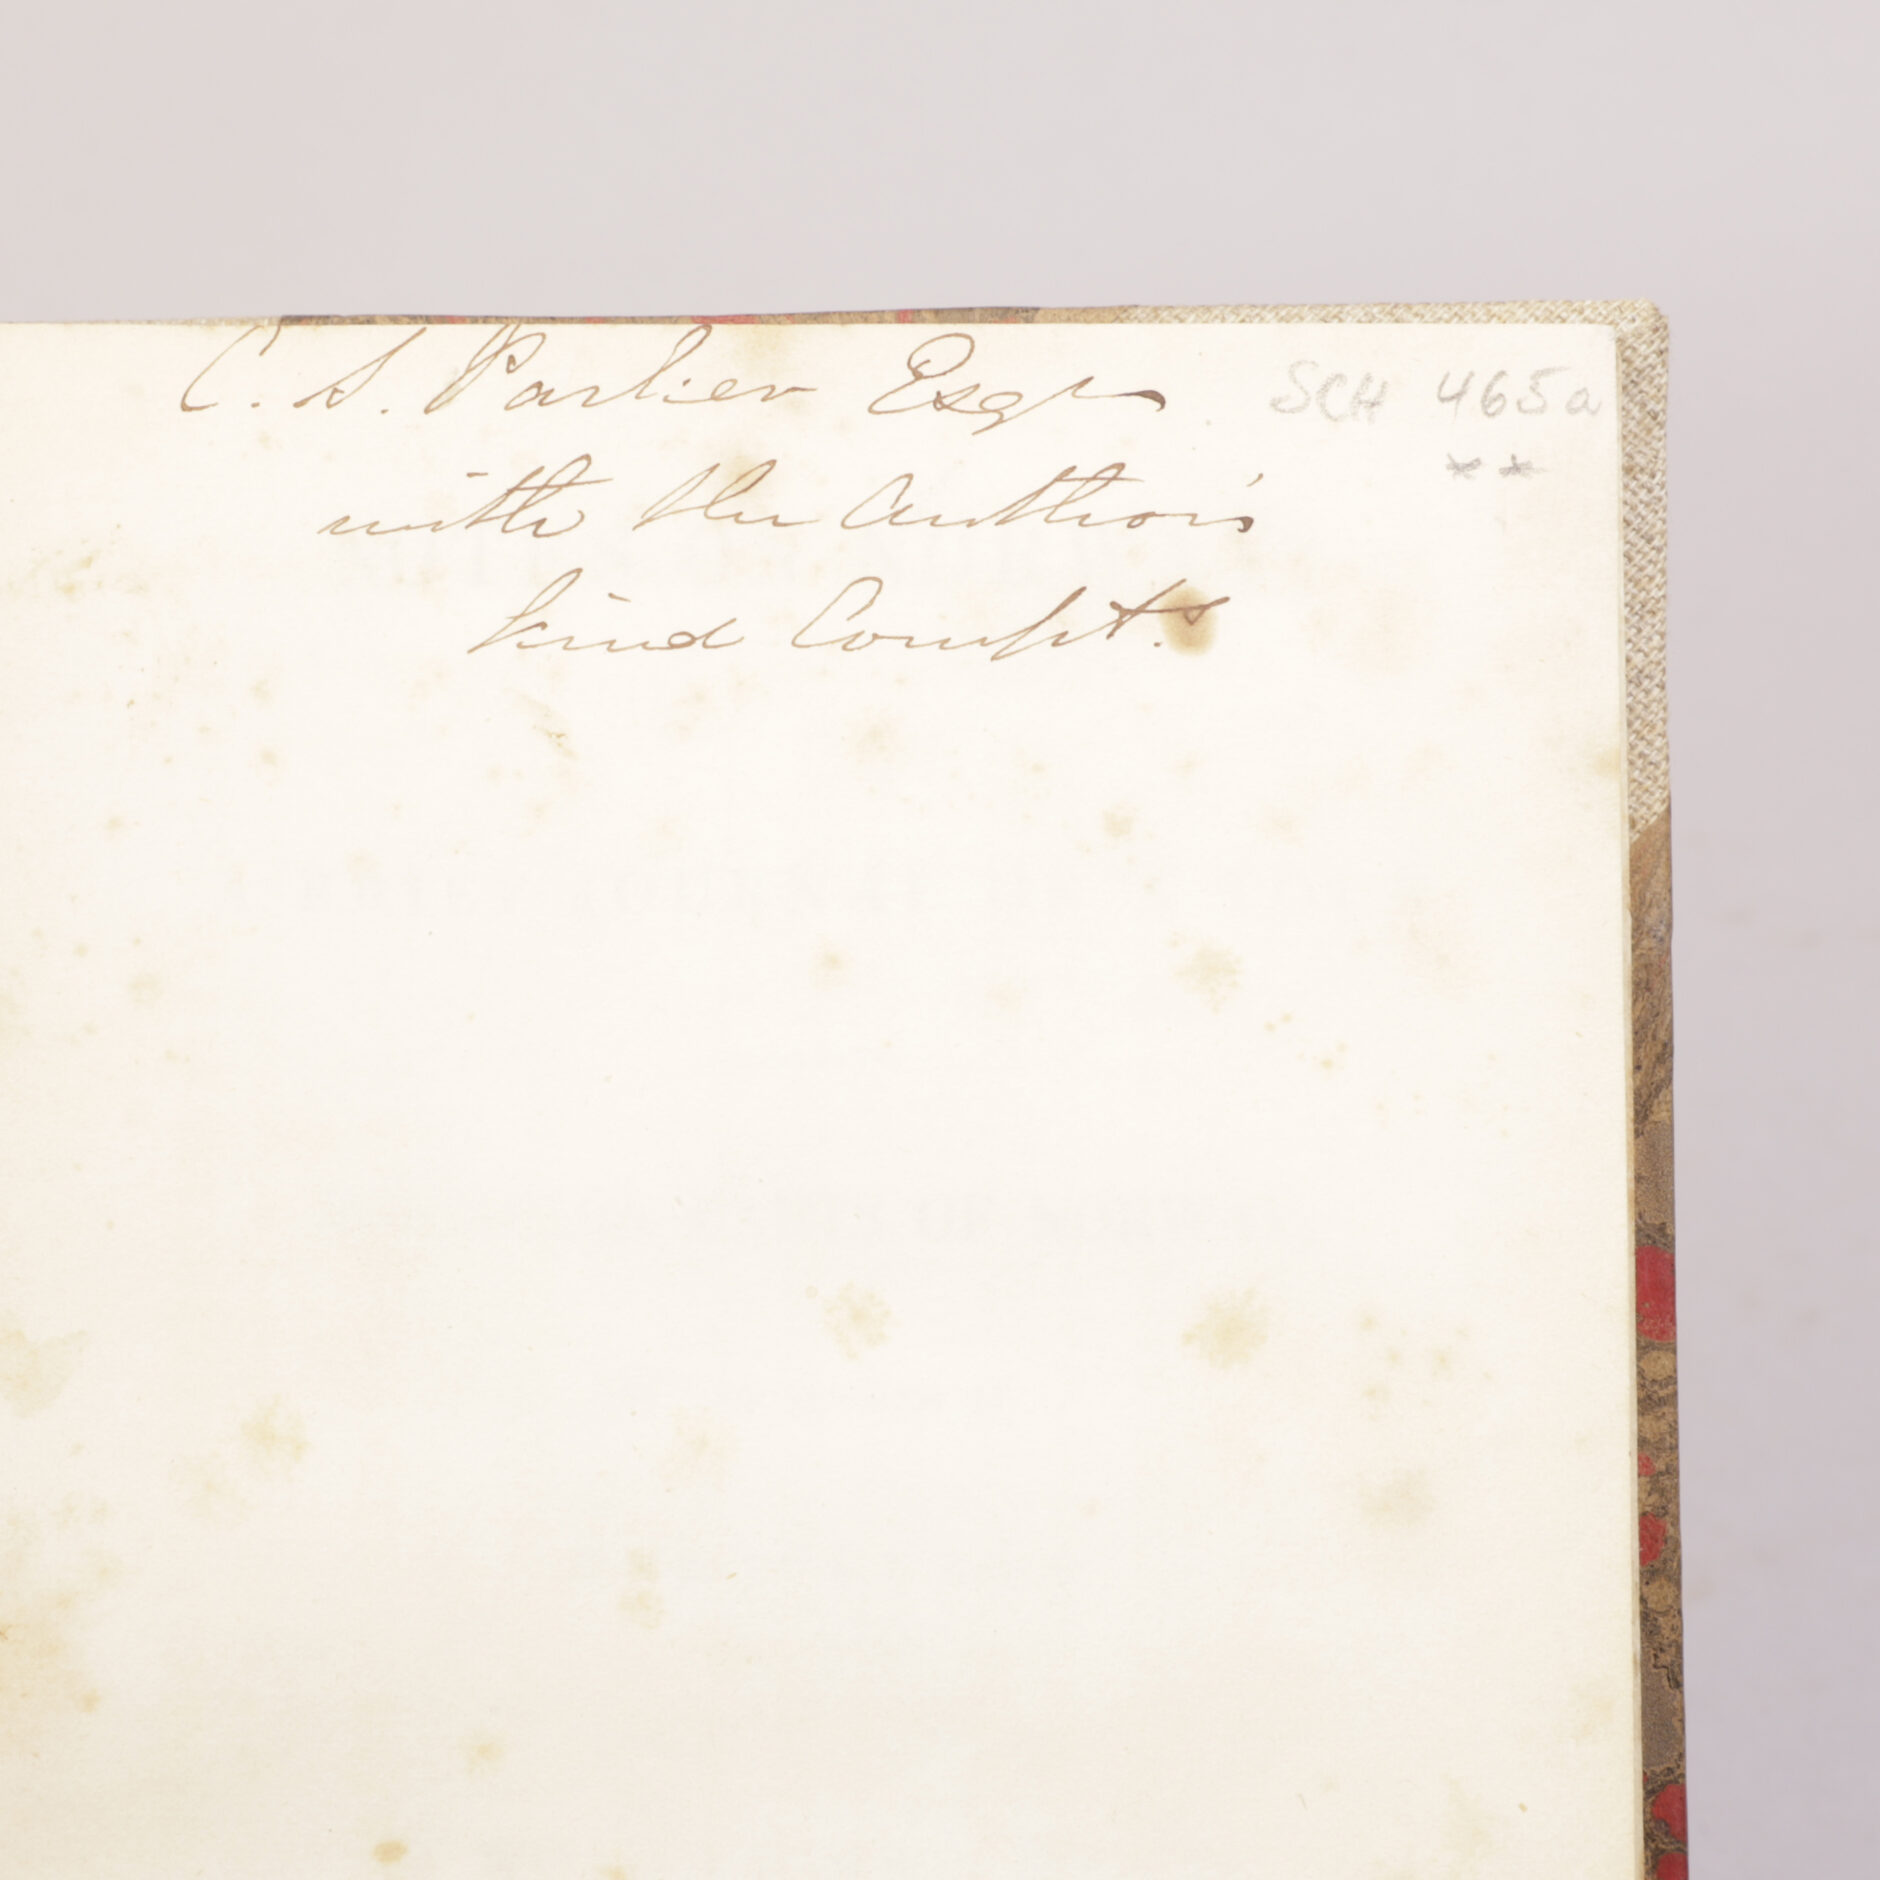 C. S. Parker Esqr
SCH 465a
with the Author's
kind Compts.